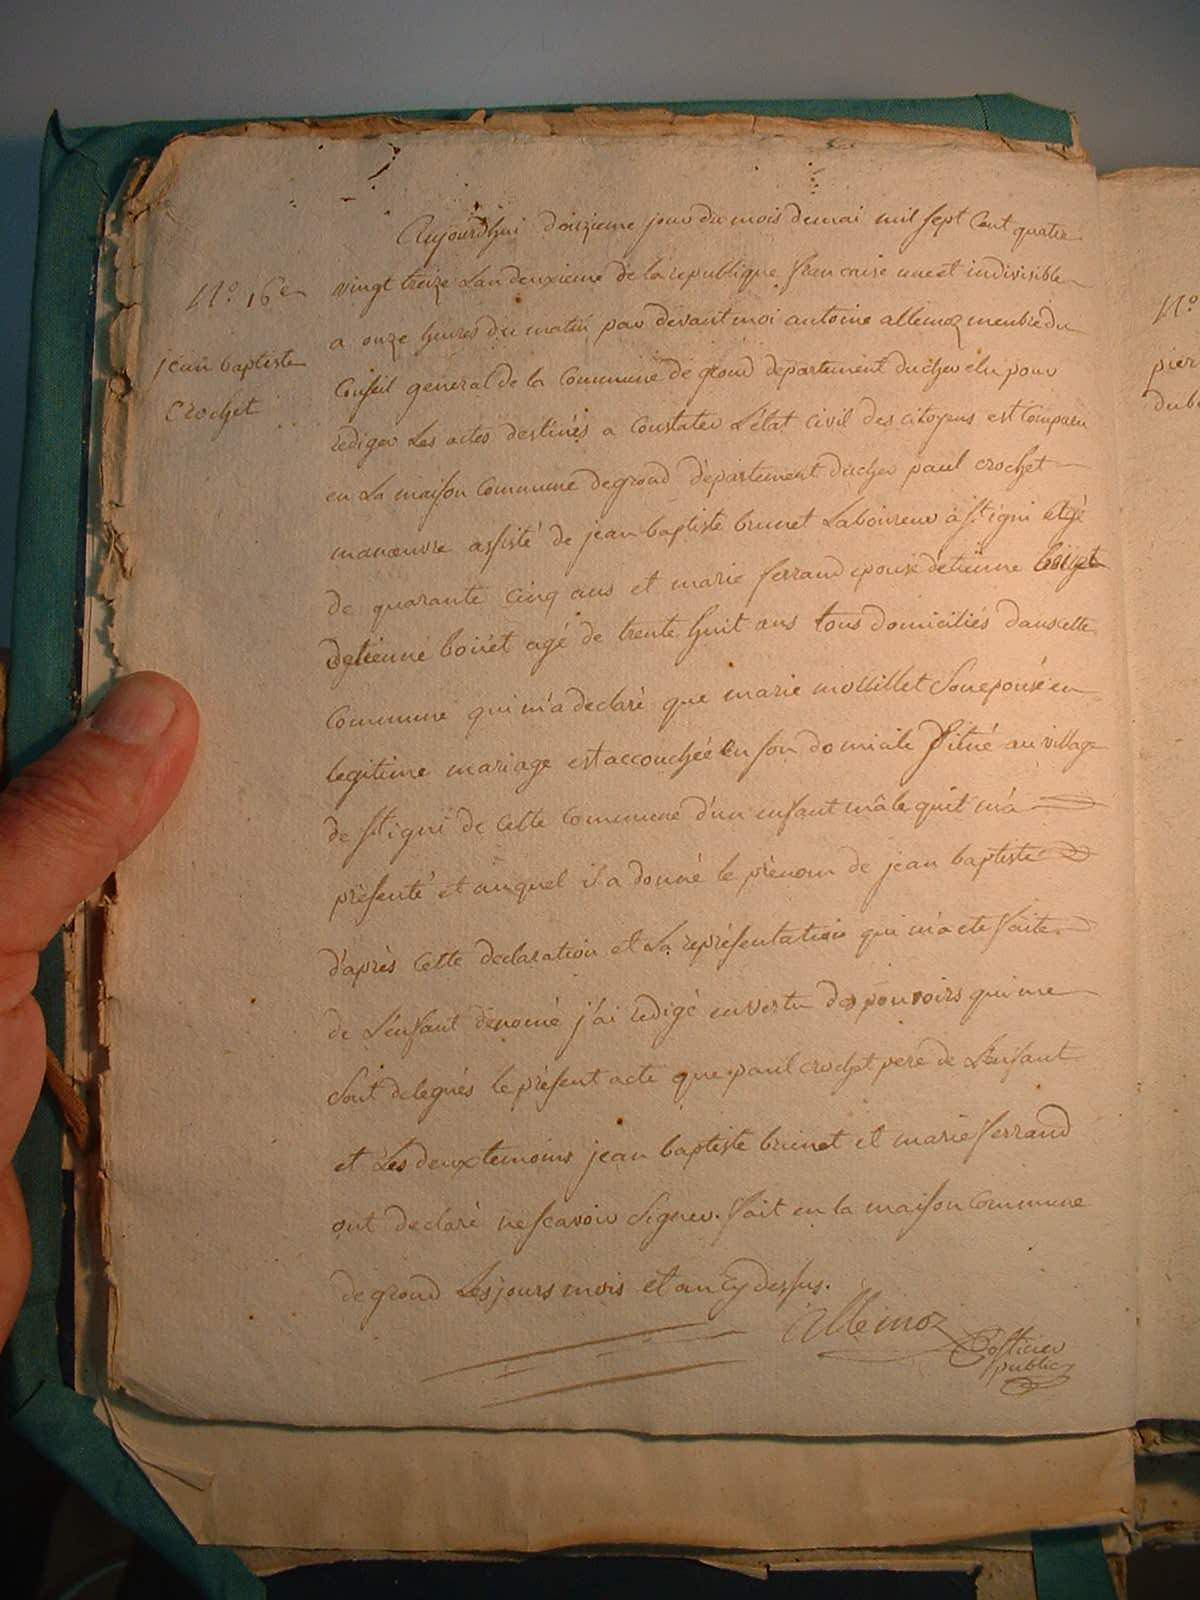 Aujourdhui douzieme jour du mois demai mil sept Cent quatre
N.o 16e
vingt treize Lan deuxieme de la republique francaise une et indivisible
a onze heures du matin par devant moi antoine allemoz menbre du
jean baptiste
Conseil general de la Commune de groud departement ducher elu pour
Crochet
rediger Les actes destinés a Constater L'état Civil des citoyens est Comparu
en La maison Commune degroud département ducher paul crochet
manœuvre assisté de jean baptiste brunet Laboureur à St igni agé
de quarante cinq ans et marie ferrand epouse détiénne
détienne boiiét agé de trente huit ans tous domiciliés dans cette
Commune qui m'a declaré que marie Son epouse en
legitime mariage est accouchée en son domicile Situé au village
de St igni de Cette Commune d'un enfant mâle quil m'a
présenté et auquel il a donné le prénom de jean baptiste
d'après Cette declaration et La représentation qui m'a ete faite
de L'enfant dénomé j'ai redigé en vertu des pouvoirs qui me
Sont delegués le présent acte que paul crochet pere de L'enfant
et Les deux temoins jean baptiste brunet et marie ferrand
ont declaré ne scavoir Signer. fait en la maison Commune
de groud Les jours mois et an Cy dessus.
allemoz
officier
public
N.o
pier
dub